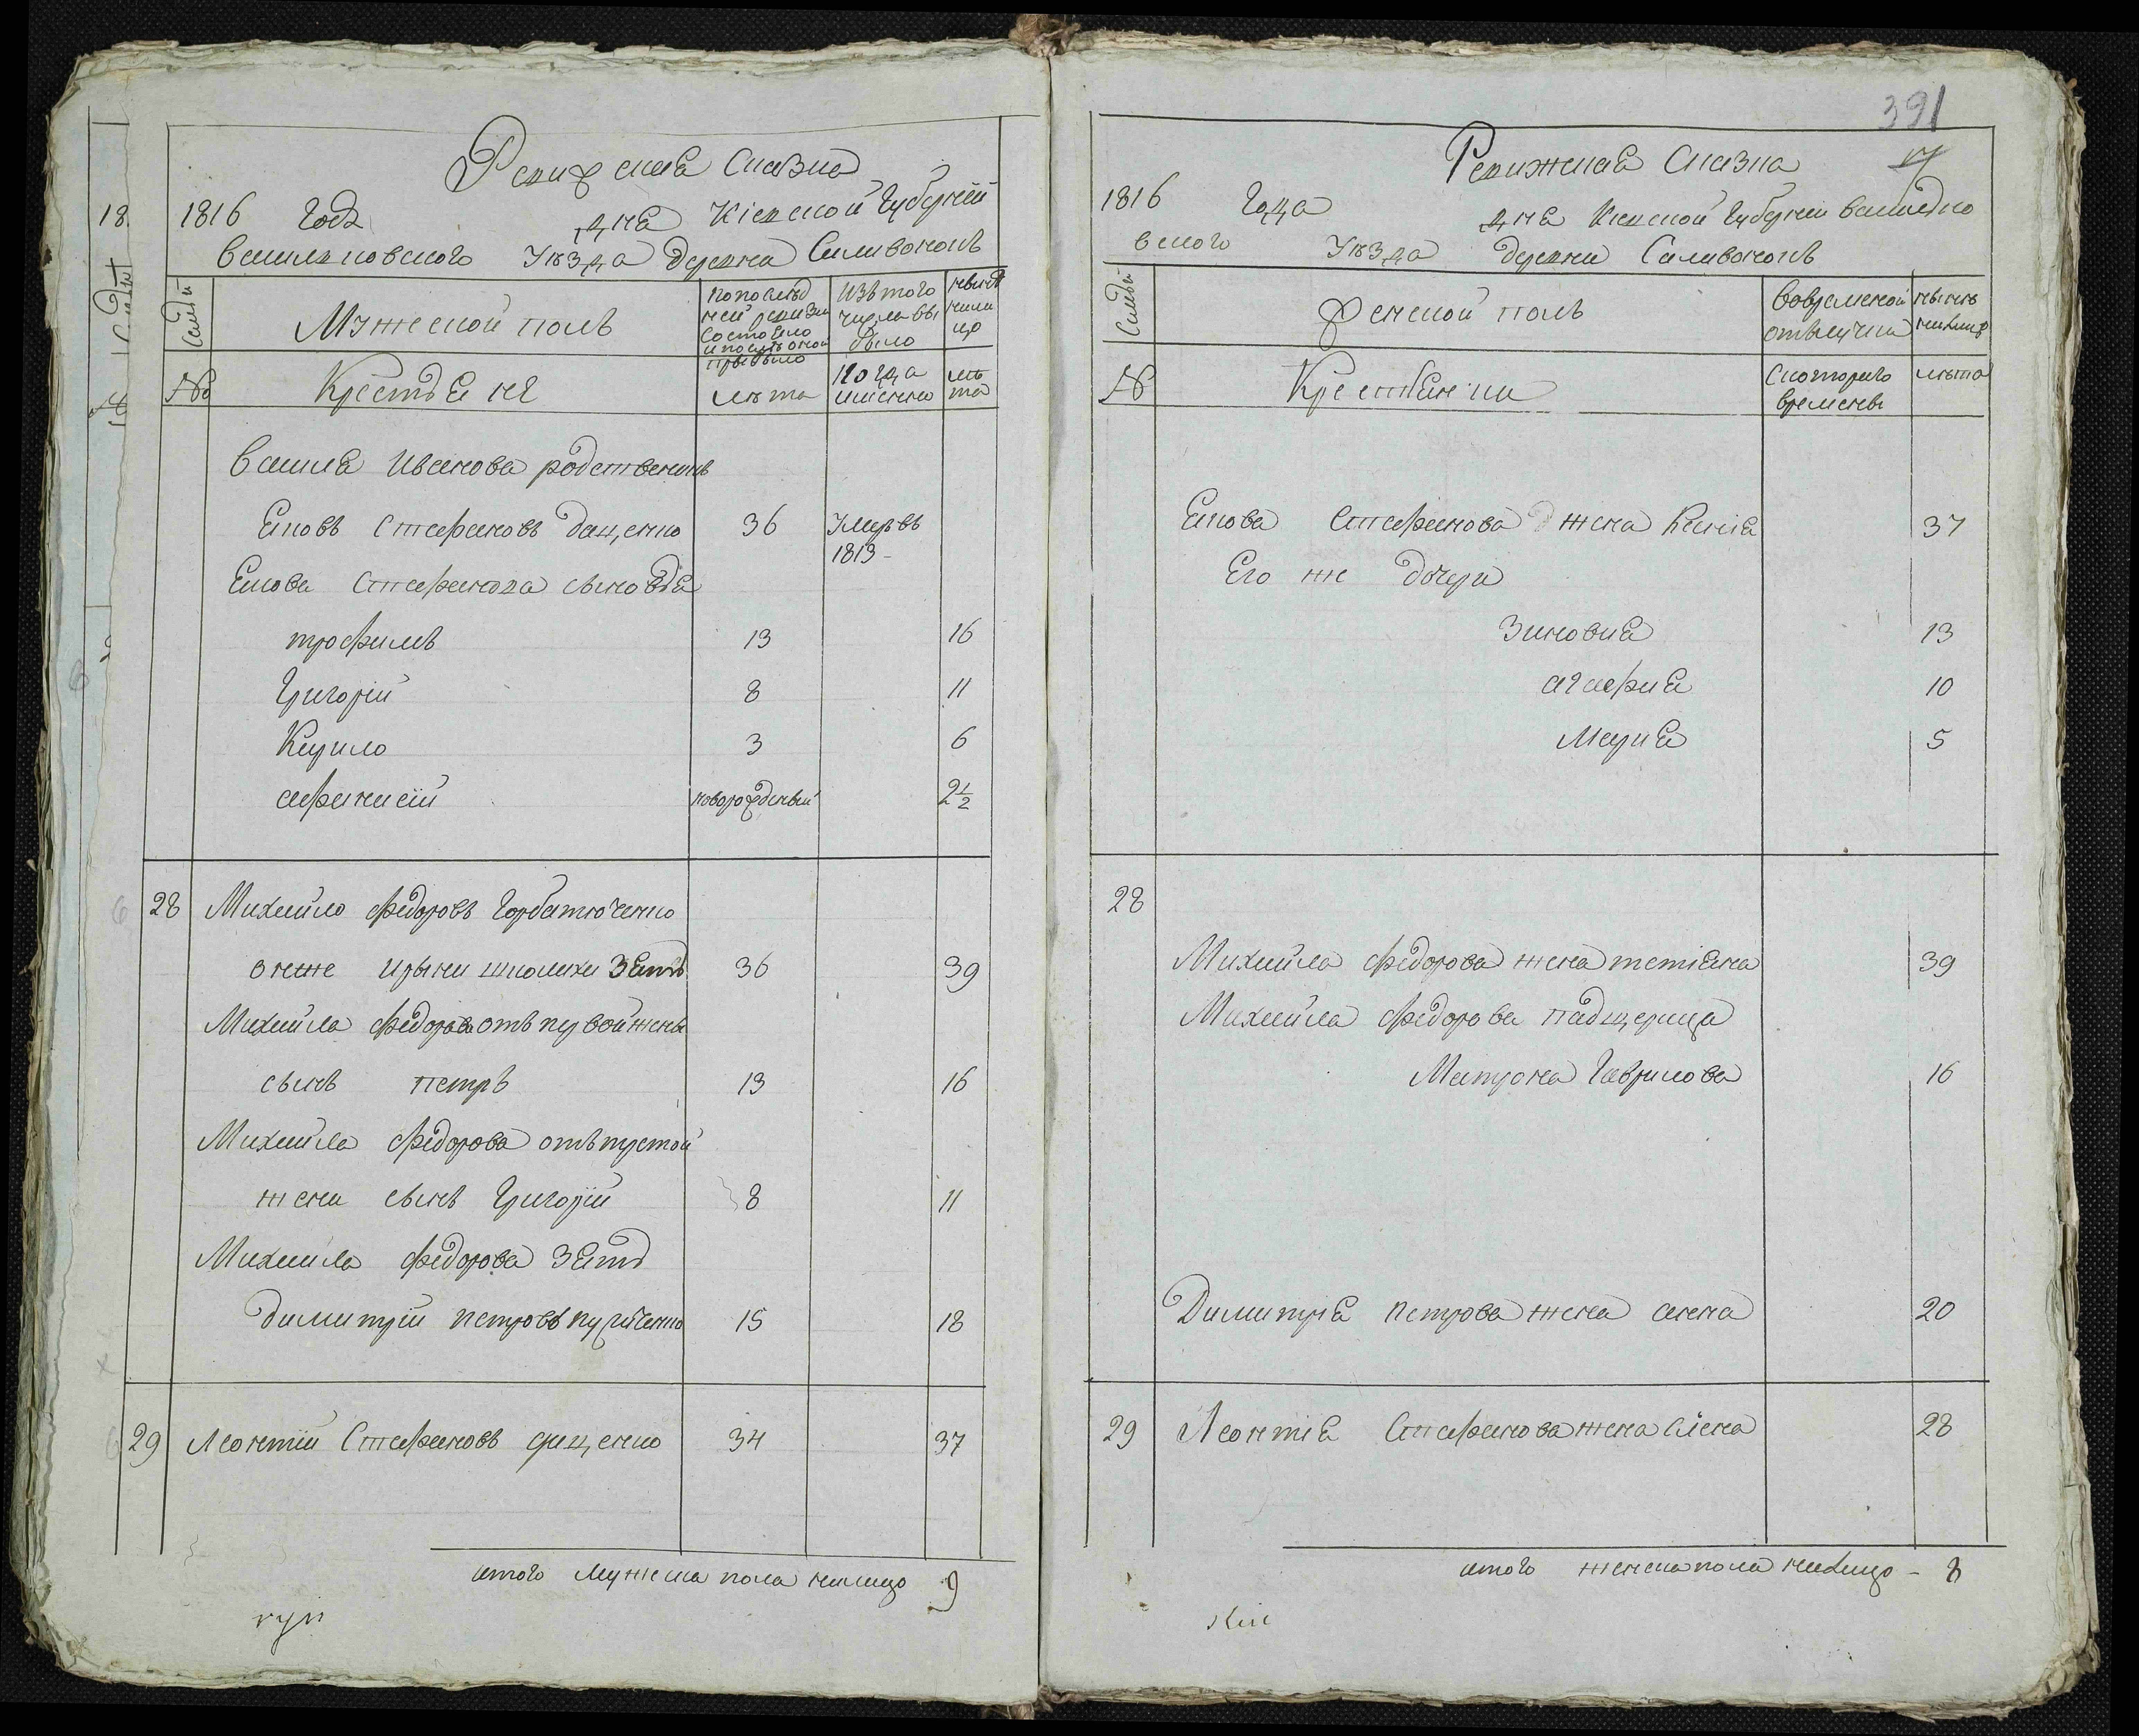 Ревижская Сказка
1816 Года дня Кіевской Губерніи
Василковского Уѣзда деревни Саливонокъ
Семьи
Мужеской полъ
По послѣд
ней ревизіи
состояло
и послѣ оной
прибыло
Изъ того
числа вы
было
нынѣ
на ли
цо
№
Крестьяне
лѣта
Когда
именно
лѣ
та
Василя Иванова родственикъ
Яковъ Стефановъ Даценко 36 Умеръ въ
1813
Якова Стефанова сыновья
трофимъ 13 16
Григорій 8 11
Кирило 3 6
афанасій новорожденый 2 1/2
28 Михайло Федоровъ Горбатюченко
онже Ирыни школихи Зять 36 39
Михайла Федорова отъ первой жены
сынъ петръ 13 16
Михайла Федорова отъ
жени сынъ Григорій 8 11
Михайла Федорова Зять
Димитрій Петровъ 15 18
29 Леонтій Стефановъ 34 37
итого мужеска пола налицо 9
391
17
Ревижская Сказка
1816 Года дня Кіевской Губерніи Василко
вского Уѣзда деревни Саливонокъ
Семьи
Женской полъ
Вовременой
отлучки
нынѣ
налицо
№
Крестьянки
Скоторого
времены
лѣта
Якова Стефанова жена Ксенія 37
Его же дочери
Зиновия 13
агафия 10
Мария 5
28
Михайла Федорова жена тетіяна 39
Михайла Федорова падщерица
Матрона Гаврилова 16
Димитрия Петрова жена анна 20
29 Леонтія Стефанова жена 28
итого женска пола налицо - 8